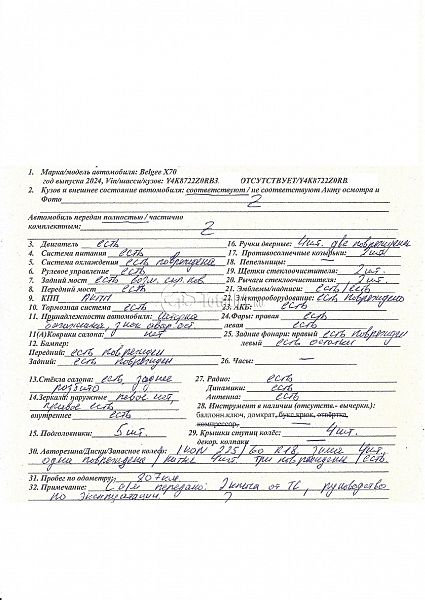 1. Марка/модель автомобиля: Belgee X70
год выпуска 2024, Vin/шасси/кузов: Y4K8722Z0RB3. ОТСУТСТВУЕТ/Y4K8722Z0RB
2. Кузов и внешнее состояние автомобиля: соответствуют / не соответствуют Акту осмотра и
Фото
Автомобиль передан полностью / частично
комплектным:
3. Двигатель есть
4. Система питания есть
5. Система охлаждения есть повреждена
6. Рулевое управление есть
7. Задний мост есть
8. Передний мост есть
9. КПП АКПП
10. Тормозная система есть
11. Принадлежности автомобиля:
11(А)Коврики салона: нет
12. Бампер:
Передний: есть поврежден
Задний: есть поврежден
13.Стёкла салона: есть заднее
разбито
14.Зеркала: наружные левое нет,
правое есть
внутреннее есть
15. Подголовники: 5 шт.
16. Ручки дверные: 4 шт. две повреждены
17. Противосолнечные козырьки: шт
18. Пепельницы:
19. Щетки стеклоочистителя: 2 шт.
20. Рычаги стеклоочистителя: 2 шт.
21. Эмблемы/надписи: есть/есть
22. Электрооборудование: есть повреждено
23. АКБ: есть
24.Фары: правая есть
левая есть
25. Задние фонари: правый есть поврежден
левый есть осколки
26. Часы:
27. Радио: есть
Динамики: есть
Антенна: есть
28. Инструмент в наличии (отсутств.- вычеркн.):
баллонен.ключ, домкрат, букс.трос, отвёртка,
компрессор.
29. Крышки ступиц колёс: 4 шт.
декор. колпаки
30. Авторезина/Диски/Запасное колесо: IKON 225/60 R18 Зима 4 шт.
одна повреждена / литые 4 шт. три повреждены / есть
31. Пробег по одометру: 207 км.
32. Примечание: С а/м передано: 2 ключа от ТС, руководство
по эксплуатации